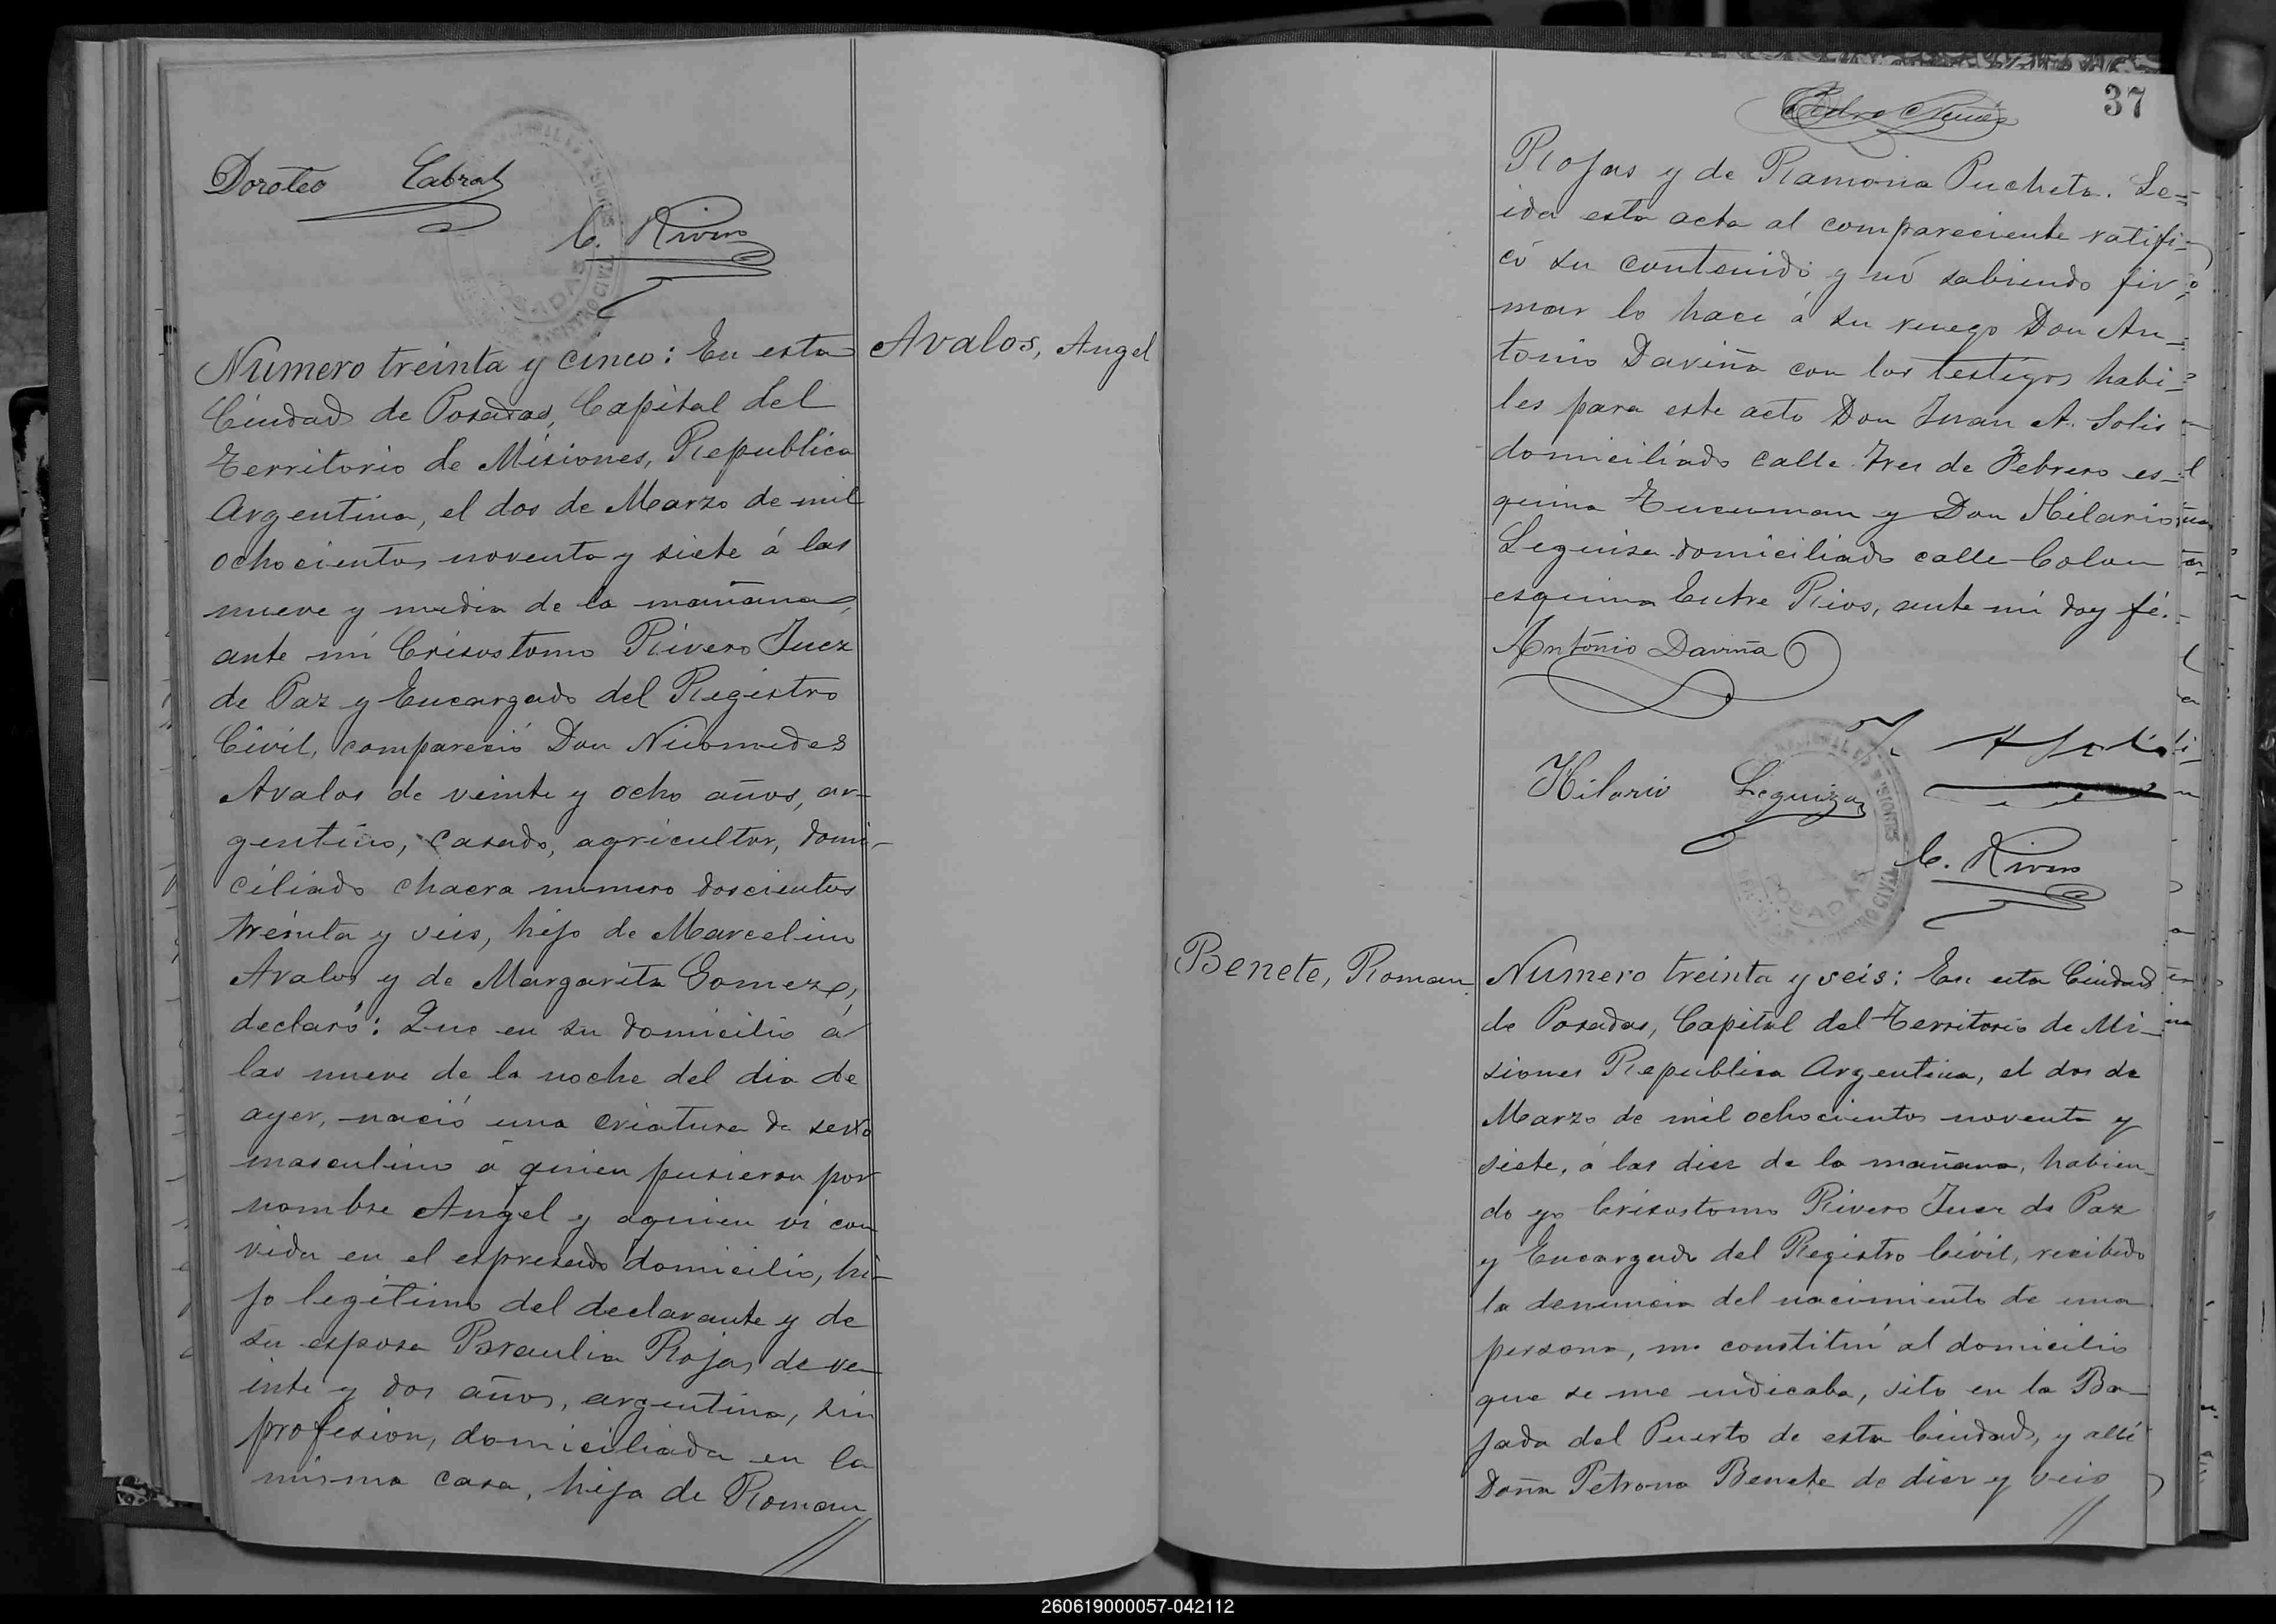 Doroteo Cabral
C. Rivero
Avalos, Angel
Numero treinta y cinco: En esta
Ciudad de Posadas, Capital del
Territorio de Misiones, Republica
Argentina, el dos de Marzo de mil
ochocientos noventa y siete á las
nueve y media de la mañana,
ante mi Crisostomo Rivero Juez
de Paz y Encargado del Registro
Civil, compareció Don Nicomedes
Avalos de veinte y ocho años, ar-
gentino, casado, agricultor, domi-
ciliado chacra numero doscientos
treinta y seis, hijo de Marcelino
Avalos y de Margarita Gomez,
declaró: Que en su domicilio á
las nueve de la noche del dia de
ayer, nació una criatura de sexo
masculino á quien pusieron por
nombre Angel y aquien vi con
vida en el espresado domicilio, hi-
jo legitimo del declarante y de
su esposa Braulia Rojas de ve
inte y dos años, argentina, sin
profesion, domiciliada en la
misma casa, hija de Roman
37
Pedro Nuñez
Rojas y de Ramona Pucheta. Le-
ida esta acta al compareciente ratifi-
có su contenido y nó sabiendo fir
mar lo hace á su ruego Don An-
tonio Daviña con los testigos habi-
les para este acto Don Juan A. Solis
domiciliado calle Tres de Febrero es-
quina Tucuman y Don Hilario
Leguisa domiciliado calle Colon
esquina Entre Rios, ante mi doy fé.-
Antonio Daviña
Hilario Leguiza
C. Rivero
POSADAS
Benete, Roman
Numero treinta y seis: En esta Ciudad
de Posadas, Capital del Territorio de Mi-
siones Republica Argentina, el dos de
Marzo de mil ochocientos noventa y
siete, á las diez de la mañana, habien-
do yo Crisostomo Rivero Juez de Paz
y Encargado del Registro Civil, recibido
la denuncia del nacimiento de una
persona, me constituí al domicilio
que se me indicaba, sito en la Ba-
jada del Puerto de esta Ciudad, y allí
Doña Petrona Benete de diez y seis
260619000057-042112